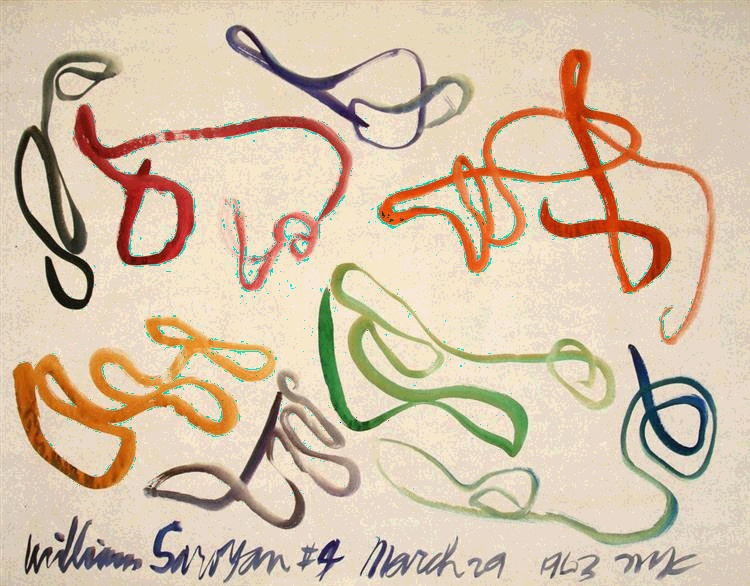 William Saroyan #4 March 29 1963 NYC